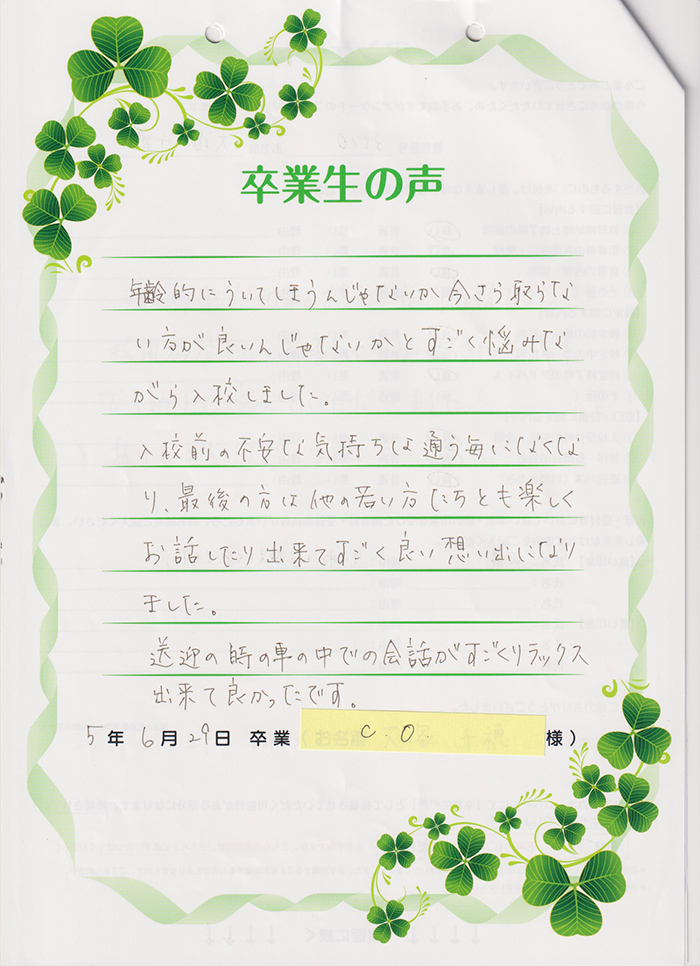 卒業生の声
年齢的にういてしまうんじゃないか今さら取らな
い方が良いんじゃないかとすごく悩みな
がら入校しました。
入校前の不安な気持ちは通う毎になくな
り、最後の方は他の若い方たちとも楽しく
お話したり出来てすごく良い想い出になり
ました。
送迎の時の車の中での会話がすごくリラックス
出来て良かったです。
5年6月29日 卒業 ( C.O. 様)